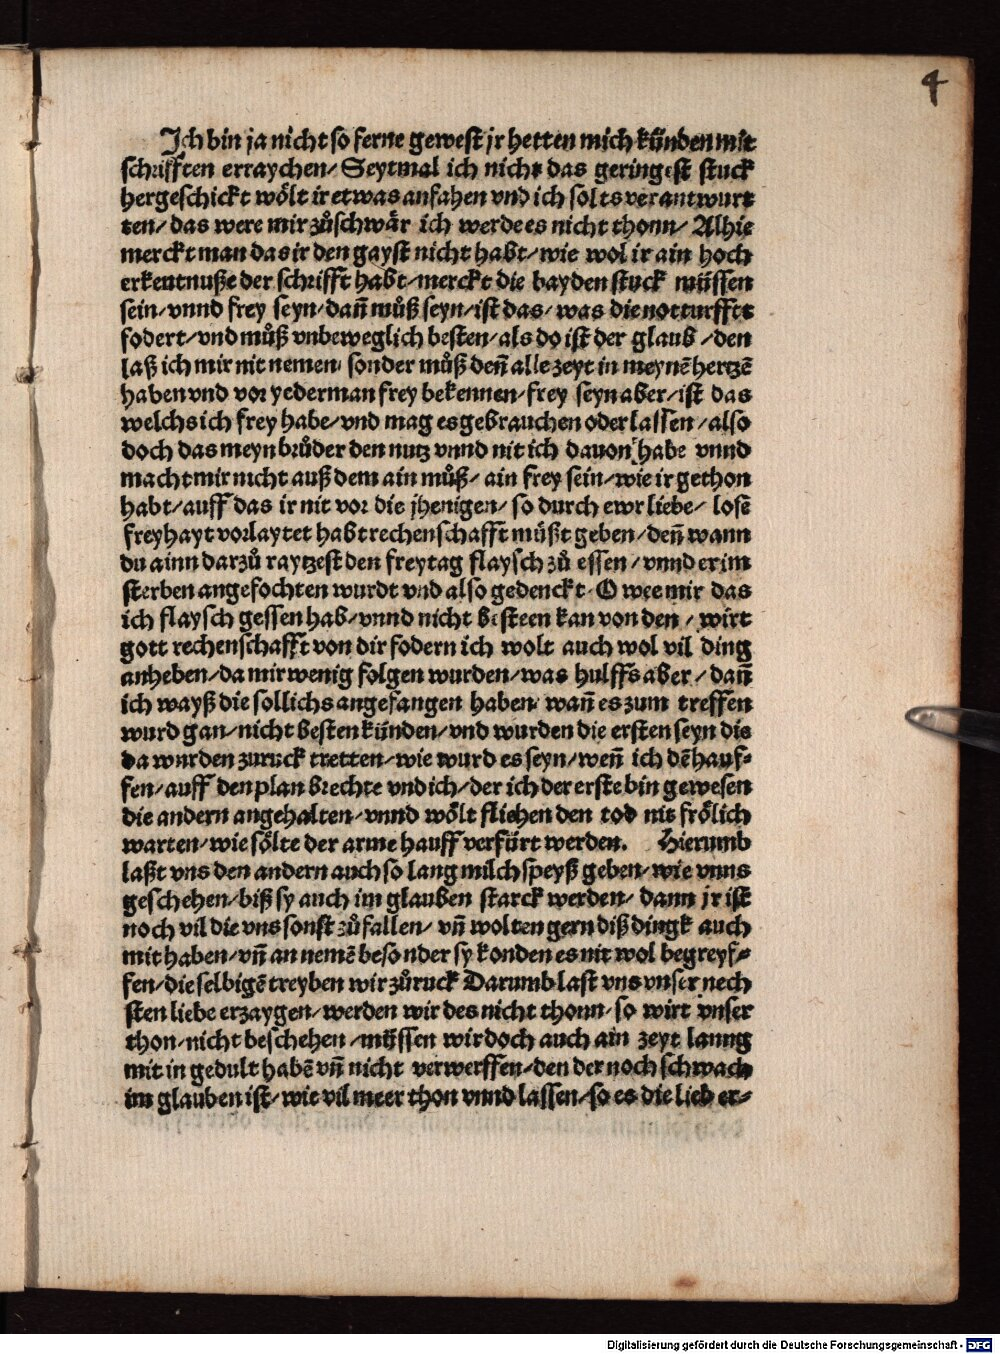 4
Ich bin ja nicht so ferne gewest jr hetten mich künden mit
schrifften erraychen/ Seytmal ich nicht das geringest stuck
hergeschickt wölt ir etwas anfahen vnd ich solts verantwurt
ten/ das were mir zůschwär ich werde es nicht thonn/ Alhie
merckt man das ir den gayst nicht habt/ wie wol ir ain hoch
erkentnuße der schrifft habt/ merckt die bayden stuck müssen
sein/ vnnd frey seyn/ dañ můß seyn/ ist das/ was die notturfft
fodert/ vnd můß vnbeweglich besten/ als do ist der glaub/ den
laß ich mir nit nemen sonder můß deñ alle zeyt in meynẽ hertzẽ
haben vnd vor yederman frey bekennen/ frey seyn aber/ ist das
welchs ich frey habe/ vnd mag es gebrauchen oder lassen/ also
doch das meyn brůder den nutz vnnd nit ich dauon habe vnnd
macht mir nicht auß dem ain můß/ ain frey sein/ wie ir gethon
habt/ auff das ir nit vor die jhenigen/ so durch ewr liebe/ losẽ
freyhayt vorlaytet habt rechenschafft müßt geben/ deñ wann
du ainn darzů raytzest den freytag flaysch zů essen/ vnnd er im
sterben angefochten wurdt vnd also gedenckt O wee mir das
ich flaysch gessen hab/ vnnd nicht besteen kan von den/ wirt
gott rechenschafft von dir fodern ich wolt auch wol vil ding
anheben/ da mir wenig folgen wurden/ was hulffs aber/ dañ
ich wayß die sollichs angefangen haben wañ es zum treffen
wurd gan/ nicht besten künden/ vnd wurden die ersten seyn die
da wurden zuruck tretten/ wie wurd es seyn/ weñ ich dẽ hauf-
fen/ auff den plan brechte vnd ich/ der ich der erste bin gewesen
die andern angehalten/ vnnd wölt fliehen den tod nit frölich
warten/ wie sölte der arme hauff verfürt werden. Hierumb
laßt vns den andern auch so lang milch speyß geben/ wie vnns
geschehen/ biß sy auch im glauben starck werden/ dann jr ist
noch vil die vns sonst zůfallen/ vñ wolten gern diß dingk auch
mit haben/ vñ an nemẽ besonder sy konden es nit wol begreyf-
fen/ die selbigẽ treyben wir zůruck Darumb last vns vnser nech
sten liebe erzaygen/ werden wir des nicht thonn/ so wirt vnser
thon/ nicht beschehen/ müssen wir doch auch ain zeyt lanng
mit in gedult habẽ vñ nicht verwerffen/ den der noch schwach
im glauben ist/ wie vil meer thon vnnd lassen/ so es die lieb er-
Digitalisierung gefördert durch die Deutsche Forschungsgemeinschaft - DFG